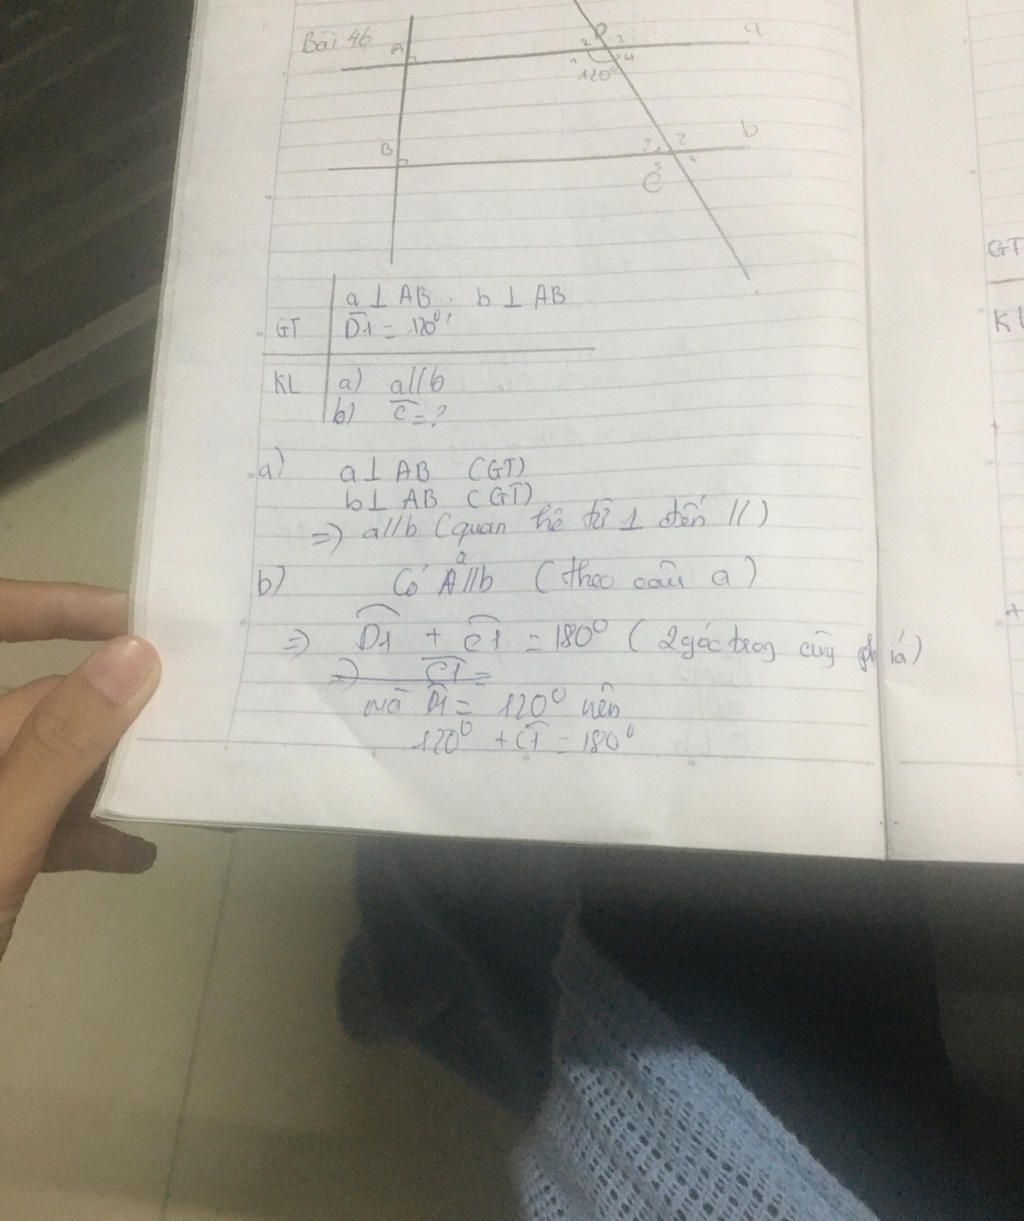 Bài 46
A
D
a
2
3
1
4
120°
B
b
2
C
a ⊥ AB. b ⊥ AB
GT
D1 = 120°
KL
a) a//b
b) C = ?
a) a ⊥ AB (GT)
b ⊥ AB (GT)
=> a//b (quan hệ từ ⊥ đến //)
a
b) Có A//b (theo câu a)
=> D1 + C1 = 180° (2 góc trong cùng phía)
=> C1 =
mà D1 = 120° nên
120° + C1 = 180°
GT
KL